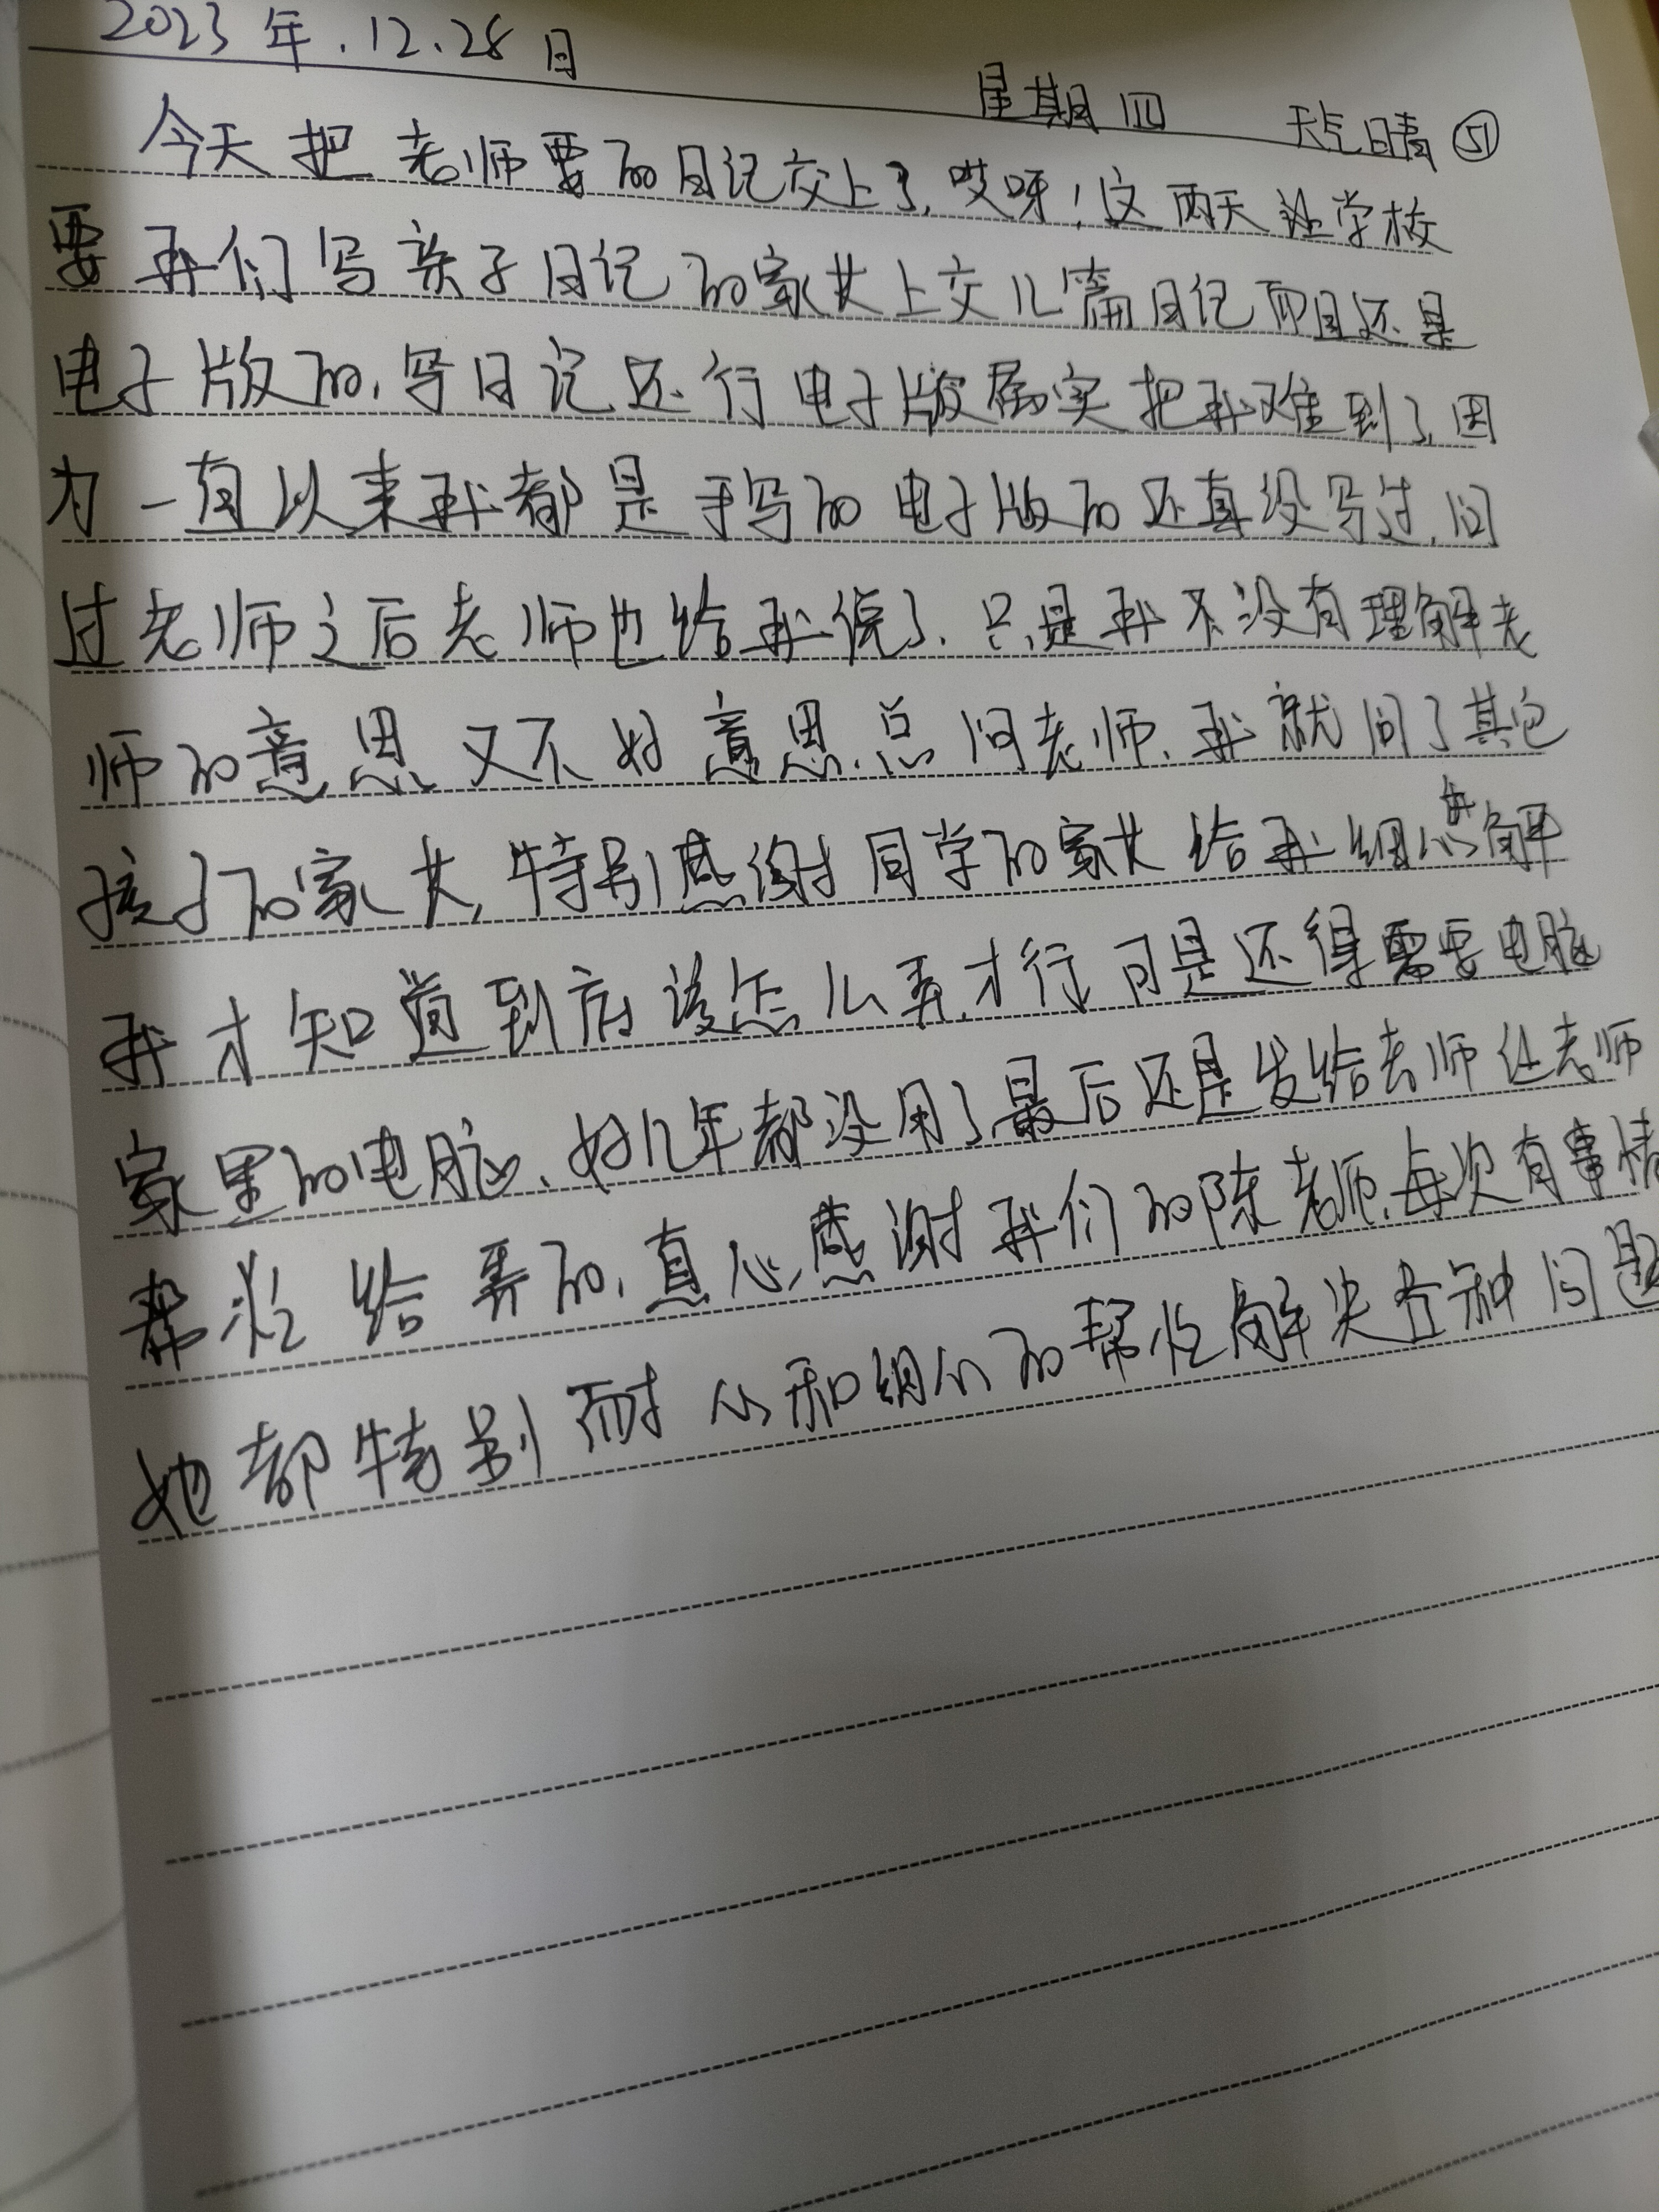 2023年.12.28日
星期四 天气晴 51
今天把老师要的日记交上了,哎呀!这两天让学校
要我们写亲子日记的家长上交几篇日记而且还是
电子版的,写日记还行电子版属实把我难到了,因
为一直以来我都是手写的电子版的还真没写过,问
过老师之后老师也给我说了.只是我不没有理解老
师的意思又不好意思总问老师.我就问了其它
孩子的家长,特别感谢同学的家长给我细心讲解
我才知道到底该怎么弄才行可是还得需要电脑
家里的电脑、好几年都没用了最后还是发给老师让老师
帮忙给弄的,真心感谢我们的陈老师,每次有事情
她都特别耐心和细心的帮忙解决各种问题